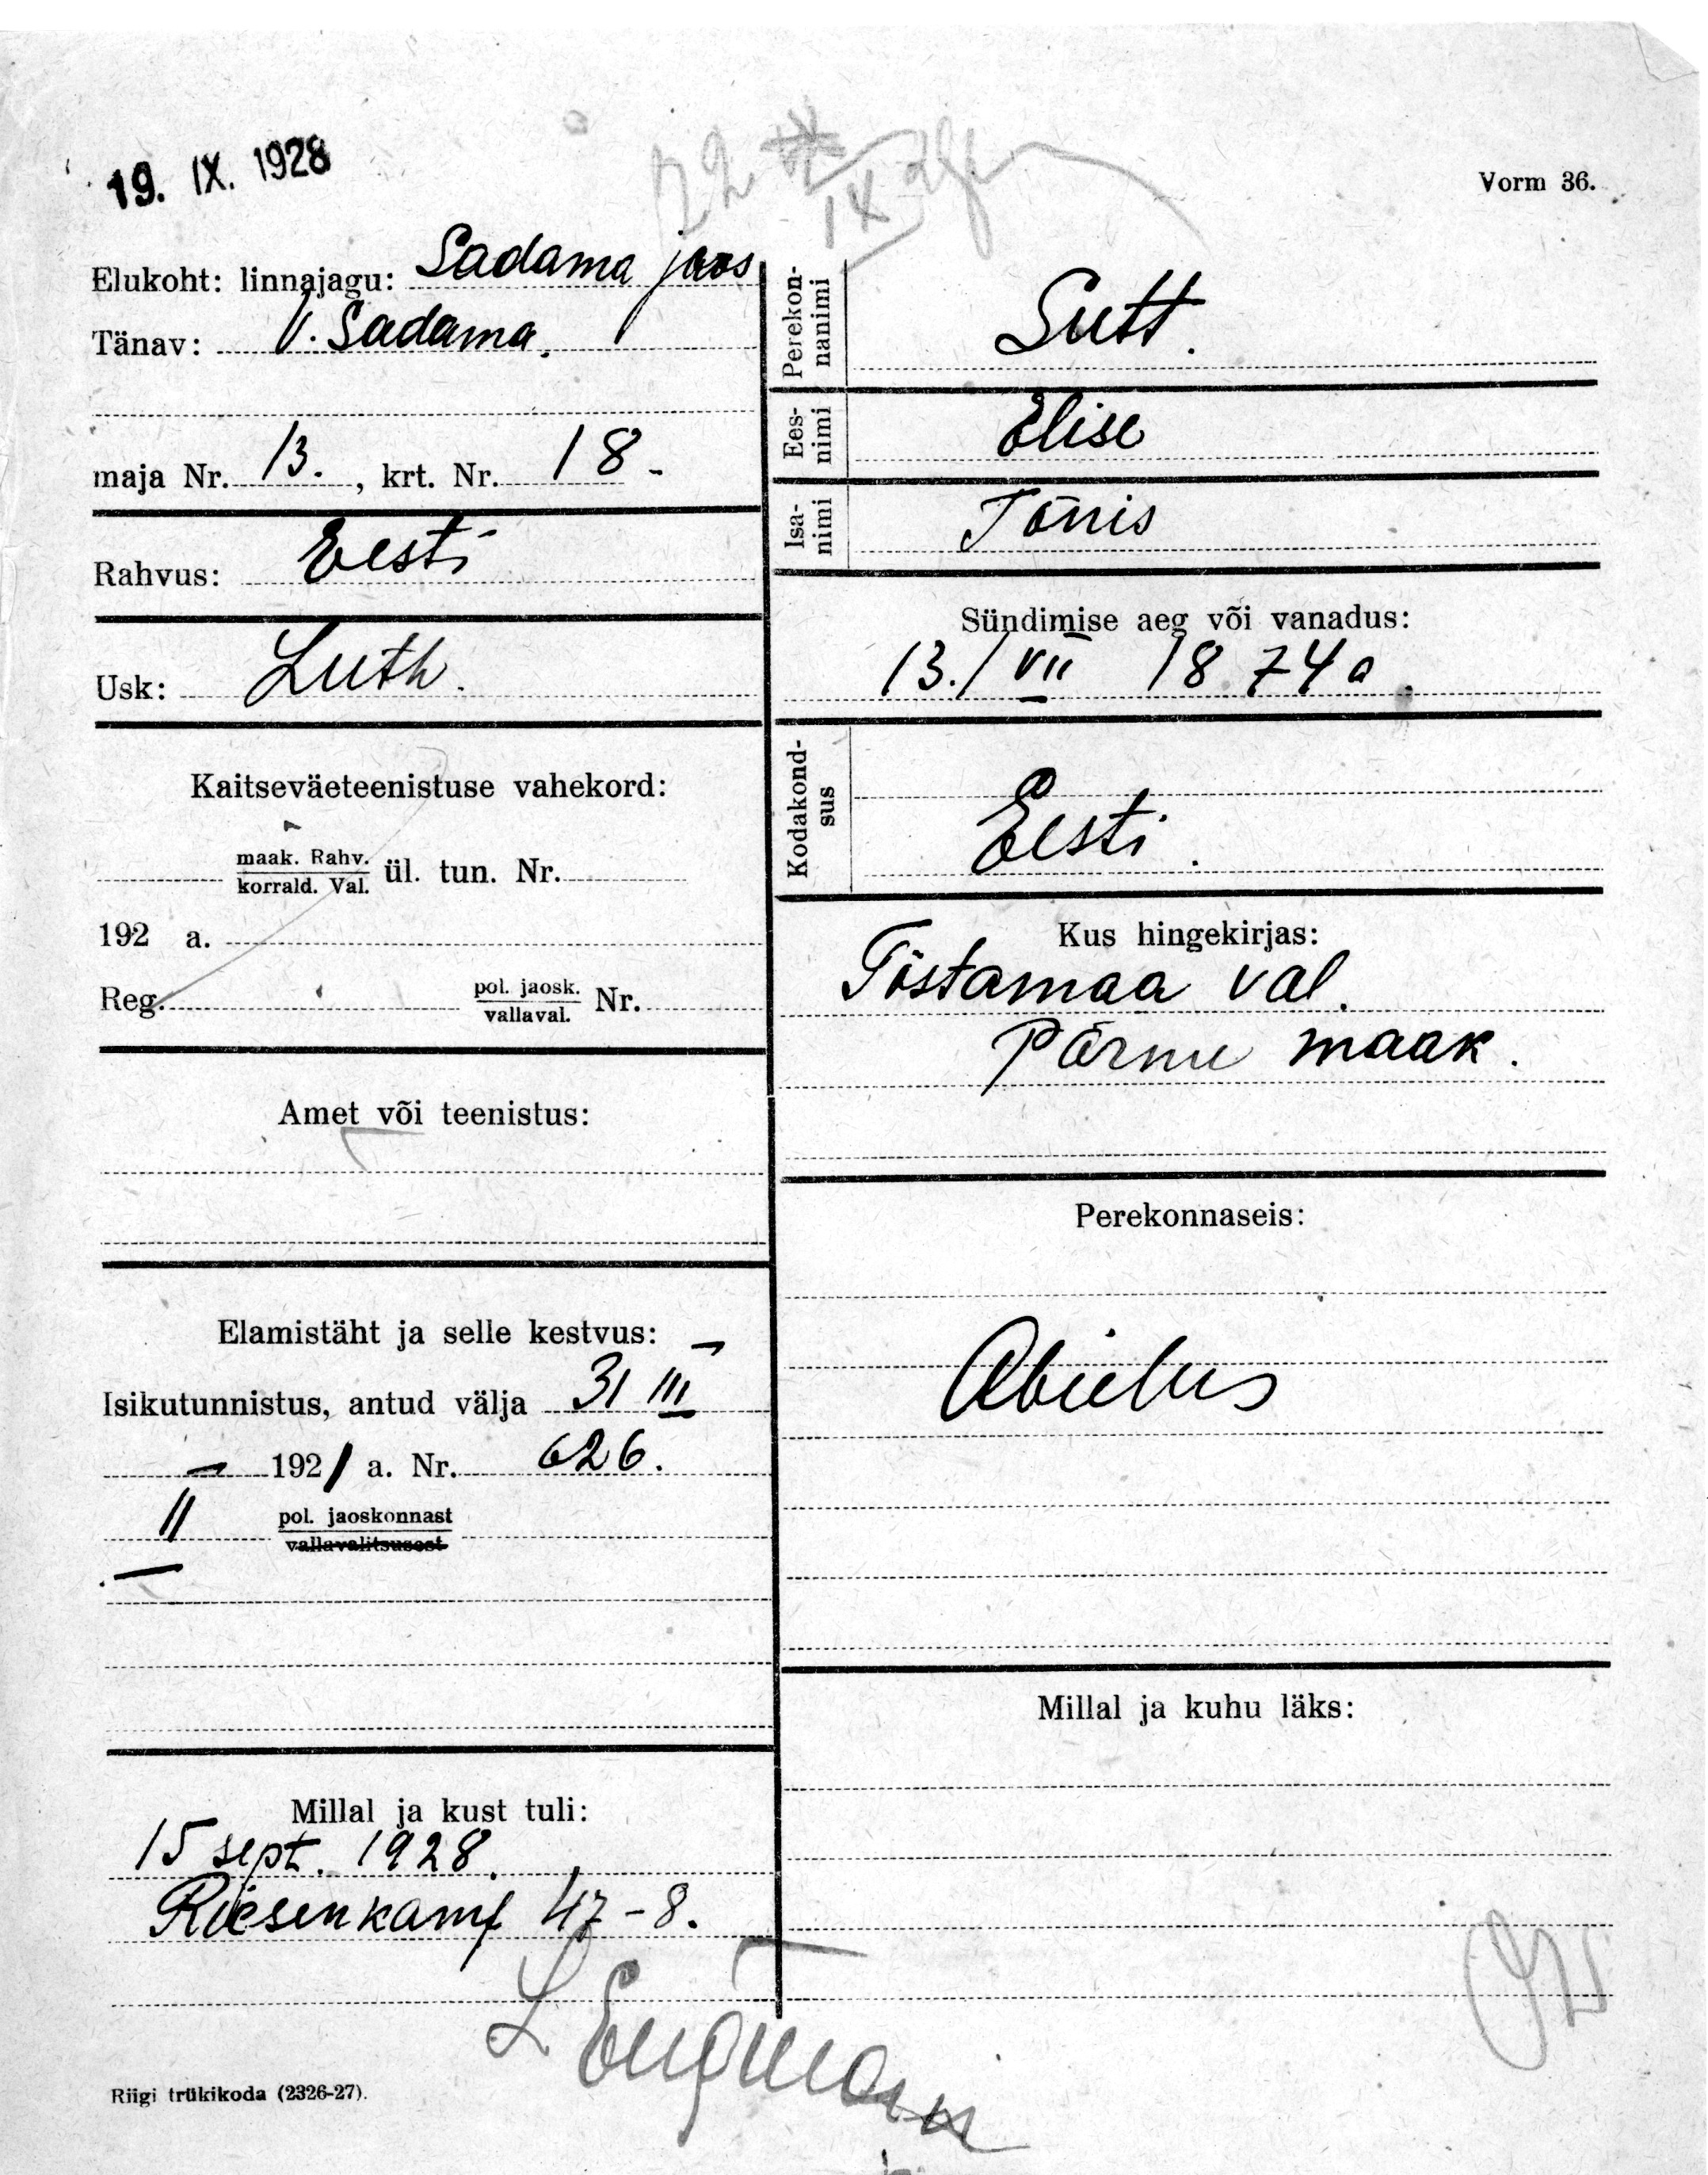 19. IX. 1928
Vorm 36.
Elukoht: linnajagu: Sadama jaos
Tänav: V. Sadama.
maja Nr. 13. , krt. Nr. 18 -
Rahvus: Eesti
Usk: Luth.
Kaitseväeteenistuse vahekord:
maak. Rahv.
korrald. Val. ül. tun. Nr.
192 a.
Reg. pol. jaosk.
vallaval. Nr.
Amet või teenistus:
Elamistäht ja selle kestvus:
Isikutunnistus, antud välja 31 III
1921 a. Nr. 626.
II pol. jaoskonnast
vallavalitsusest
Millal ja kust tuli:
15 sept. 1928.
Riesenkamf 47-8.
Perekonnanimi
Sutt.
Eesnimi
Elise
Isanimi
Tõnis
Sündimise aeg või vanadus:
13./VII 1874 a.
Kodakondsus
Eesti.
Kus hingekirjas:
Tõstamaa val.
Pärnu maak.
Perekonnaseis:
Abielus
Millal ja kuhu läks:
L Engmann
Riigi trükikoda (2326-27).